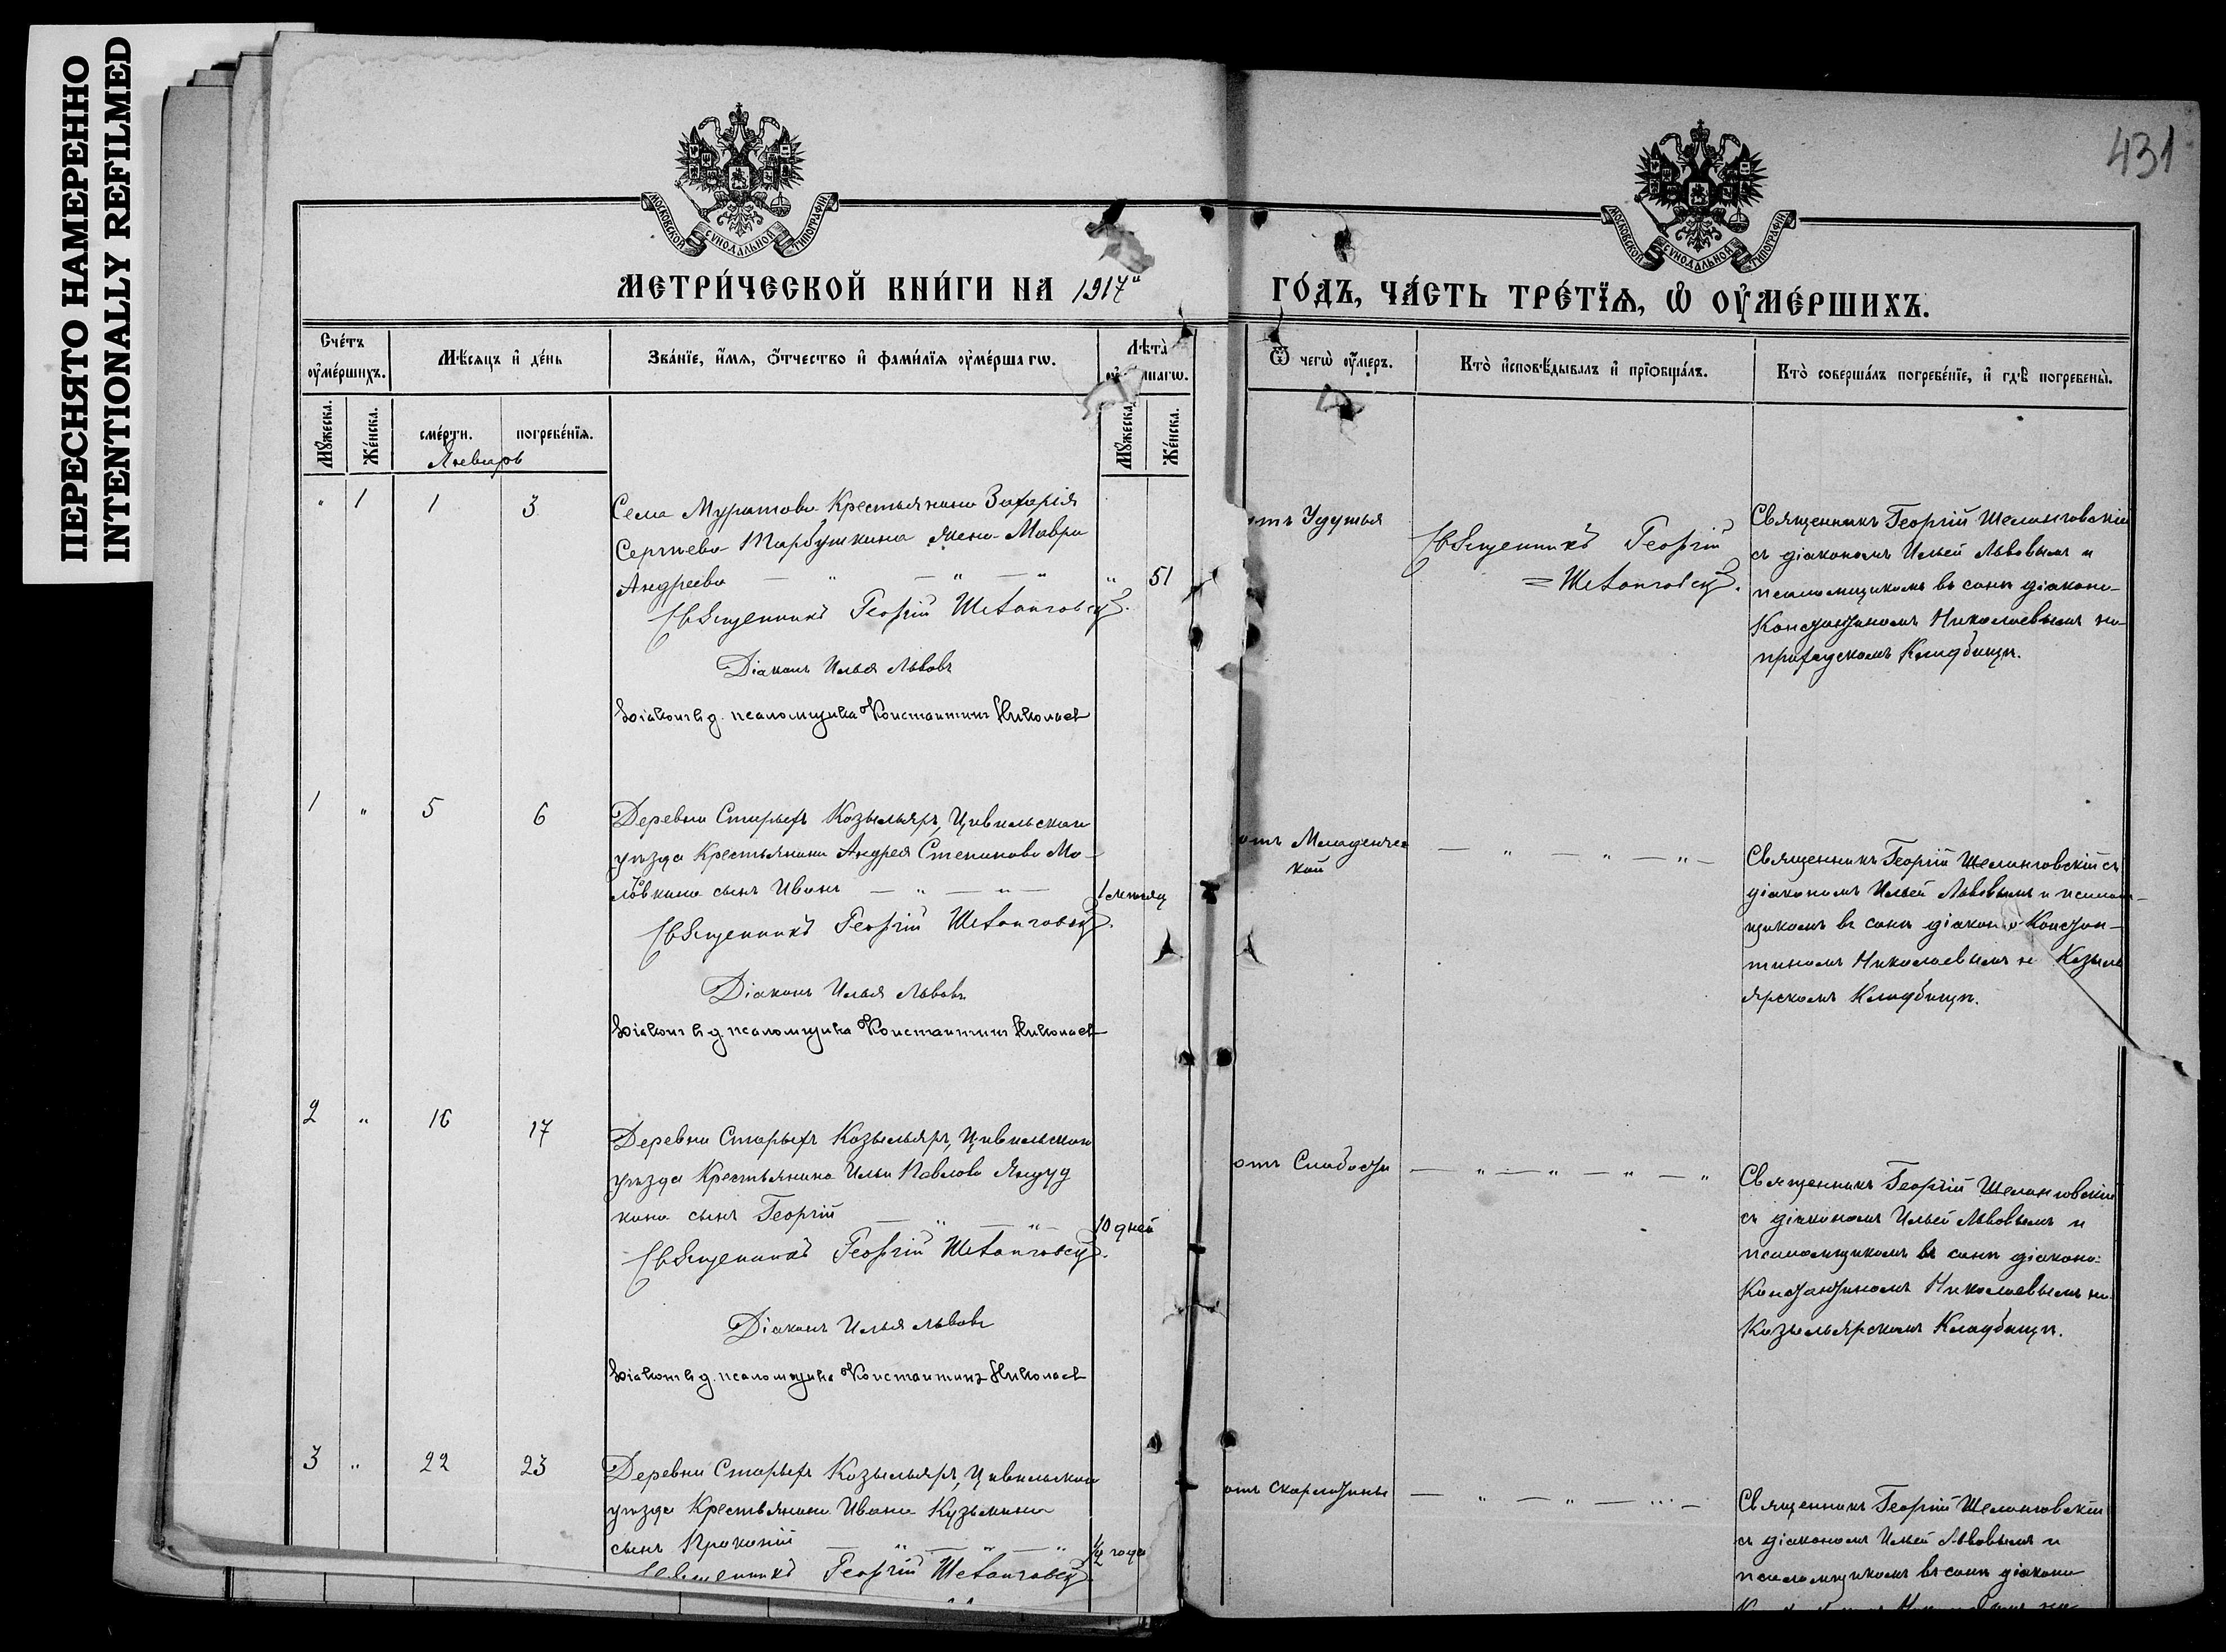 ПЕРЕСНЯТО НАМЕРЕННО
INTENTIONALLY REFILMED
431
МОСКОВСКОЙ СѴНОДАЛЬНОЙ ТИПОГРАФІИ
МОСКОВСКОЙ СѴНОДАЛЬНОЙ ТИПОГРАФІИ
МЕТРИ́ЧЕСКОЙ КНИ́ГИ НА 1917й
ГО́ДЪ, ЧА́СТЬ ТРЕ́ТЇѦ, Ѡ҆ ОУ҆МЕ́РШИХЪ.
Сче́тъ оу҆ме́ршихъ.
Мѣ́сяцъ и҆ де́нь
Зва́нїе, и҆́мѧ, ѻ҆́тчество и҆ фами́лїѧ оу҆ме́ршагѡ.
Лѣ́та
Ѿ чегѡ̀ оу҆́меръ.
Кто̀ и҆сповѣ́дывалъ и҆ прїѡбща́лъ.
Кто̀ соверша́лъ погребе́нїе, и҆ гдѣ̀ погребены̀.
Мꙋ́жеска.
Же́нска.
сме́рти.
погребе́нїѧ.
Мꙋ́жеска.
Же́нска.
Январь
" 1 1 3
Села Муратова Крестьянина Захарія
Сергѣева Тарбушкина жена Мавра
Андреева — " — " — " " 51
Священникъ Георгій Шеланговскій.
Діаконъ Илья Львовъ
Діаконъ н д. псаломщика Константинъ Николаевъ
отъ Удушья
Священникъ Георгій
= Шеланговскій.
Священникъ Георгій Шеланговскій
съ діакономъ Ильей Львовымъ и
псаломщикомъ въ санѣ діакона
Константиномъ Николаевымъ на
приходскомъ Кладбищѣ.
1 " 5 6
Деревни Старыхъ Козыльяръ, Цивильскаго
уѣзда Крестьянина Андрея Степанова Мо-
ловкина сынъ Иванъ — " — " — 1 мѣсяц
Священникъ Георгій Шеланговскій.
Діаконъ Илья Львовъ
Діаконъ н д. псаломщика Константинъ Николаевъ
отъ Младенчес
кой
— " — " — " —
Священникъ Георгій Шеланговскій съ
діакономъ Ильей Львовымъ и псалом-
щикомъ въ санѣ діакона Констан-
тиномъ Николаевымъ на Козыль
ярскомъ Кладбищѣ.
2 " 16 17
Деревни Старыхъ Козыльяръ, Цивильскаго
уѣзда Крестьянина Ильи Павлова
сынъ Георгій — " — " — 10 дней
Священникъ Георгій Шеланговскій.
Діаконъ Илья Львовъ
Діаконъ н д. псаломщика Константинъ Николаевъ
отъ Слабости
— " — " — " — "
Священникъ Георгій Шеланговскій
съ діакономъ Ильей Львовымъ и
псаломщикомъ въ санѣ діакона
Константиномъ Николаевымъ на
Козыльярскомъ Кладбищѣ.
3 " 22 23
Деревни Старыхъ Козыльяръ, Цивильскаго
уѣзда Крестьянина Ивана Кузьмина
сынъ — " — " — " 1/2 года
Священникъ Георгій Шеланговскій.
отъ Скарлатины
— " — " — " —
Священникъ Георгій Шеланговскій
съ діакономъ Ильей Львовымъ и
псаломщикомъ въ санѣ діакона